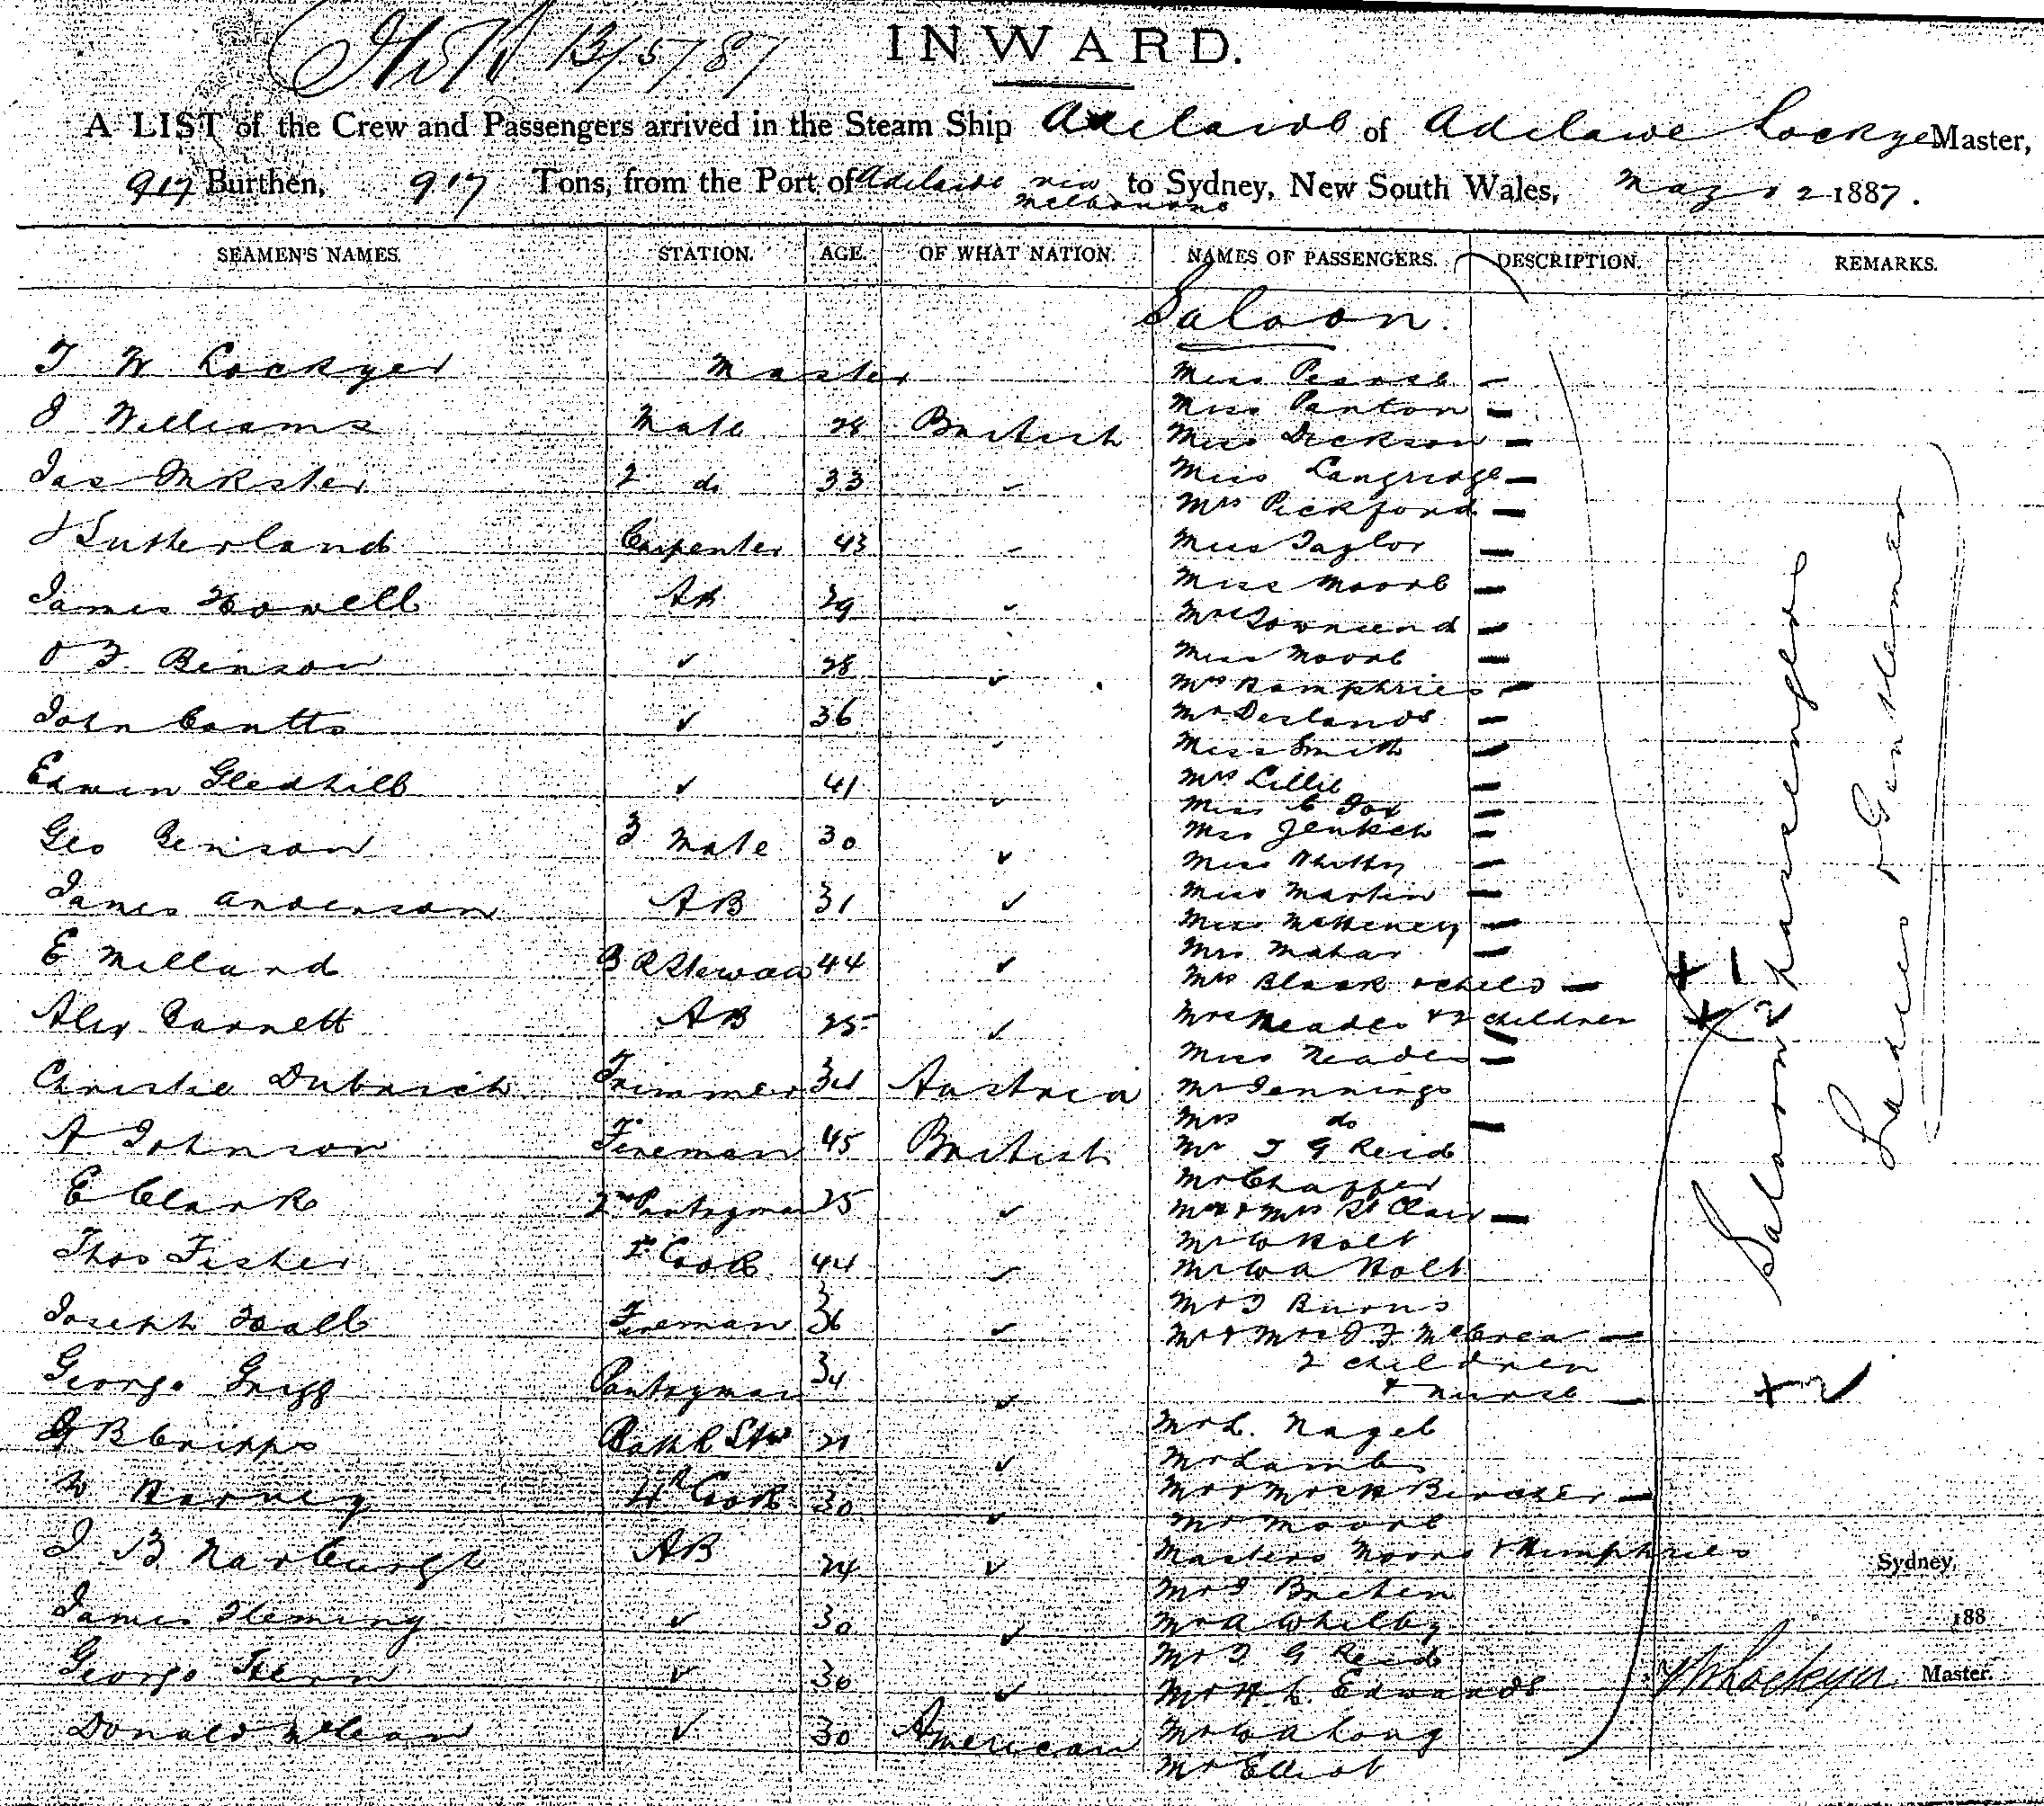 13/5/87
INWARD.
A LIST of the Crew and Passengers arrived in the Steam Ship Adelaide of Adelaide Lockyer Master,
917 Burthen, 917 Tons, from the Port of Adelaide via Melbourne to Sydney, New South Wales, May 12 1887.
SEAMEN'S NAMES. STATION. AGE. OF WHAT NATION. NAMES OF PASSENGERS. DESCRIPTION. REMARKS.
Saloon.
T W Lockyer Master
J Williams Mate 28 British
Jas 2 do 33 "
J Sutherland Carpenter 43 "
James Howell AB 29 "
O F Benson " 28 "
John Coutts " 36 "
Edwin Gledhill " 41 "
Geo Benison 3 Mate 30 "
James Anderson AB 31 "
E Milland B R Steward 44 "
Alex Barnett AB 25 "
Christie Dubrich Trimmer 34 Austria
A Johnson Fireman 45 British
E Clark 2nd Pantryman 25 "
Thos Fisher Cook 44 "
Joseph Hall Fireman 36 "
George Grigg Pantryman 34 "
B Cripps Bath R Stw 21 "
W Harvey 4th Cook 30 "
J B Narburgh AB 24 "
James Fleming " 30 "
George Hern " 30 "
Donald McLean " 30 American
Miss Pearse
Miss Panton
Miss Dickson
Miss Langridge
Mrs Pickford
Miss Taylor
Miss Moore
Mrs Townsend
Miss Moore
Mrs Humphries
Mr Deslands
Miss Smith
Mrs Lillie
Miss C Fox
Miss Whitby
Miss Martin
Miss
Mrs Mahar
Mrs Black & child + 1
Mrs Meades & 2 children + 2
Miss Meades
Mr Jennings
Mrs do
Mr T G Reid
Mr Chaffer
Mr & Mrs St Clair
Mr W Holt
Mr W A Holt
Mr J Burns
Mr & Mrs J F McCrea
2 children
& nurse + 2
Mr L. Nagel
Mr Lamb
Mr & Mrs H Bircher
Mr Moore
Masters Moore & Humphries
Mr J
Mr A Whitby
Mr T G Reid
Mr H. L. Edwards
Mr W A Long
Mr Elliot
Saloon Passengers
Ladies & Gentlemen
Sydney,
188
T W Lockyer Master.